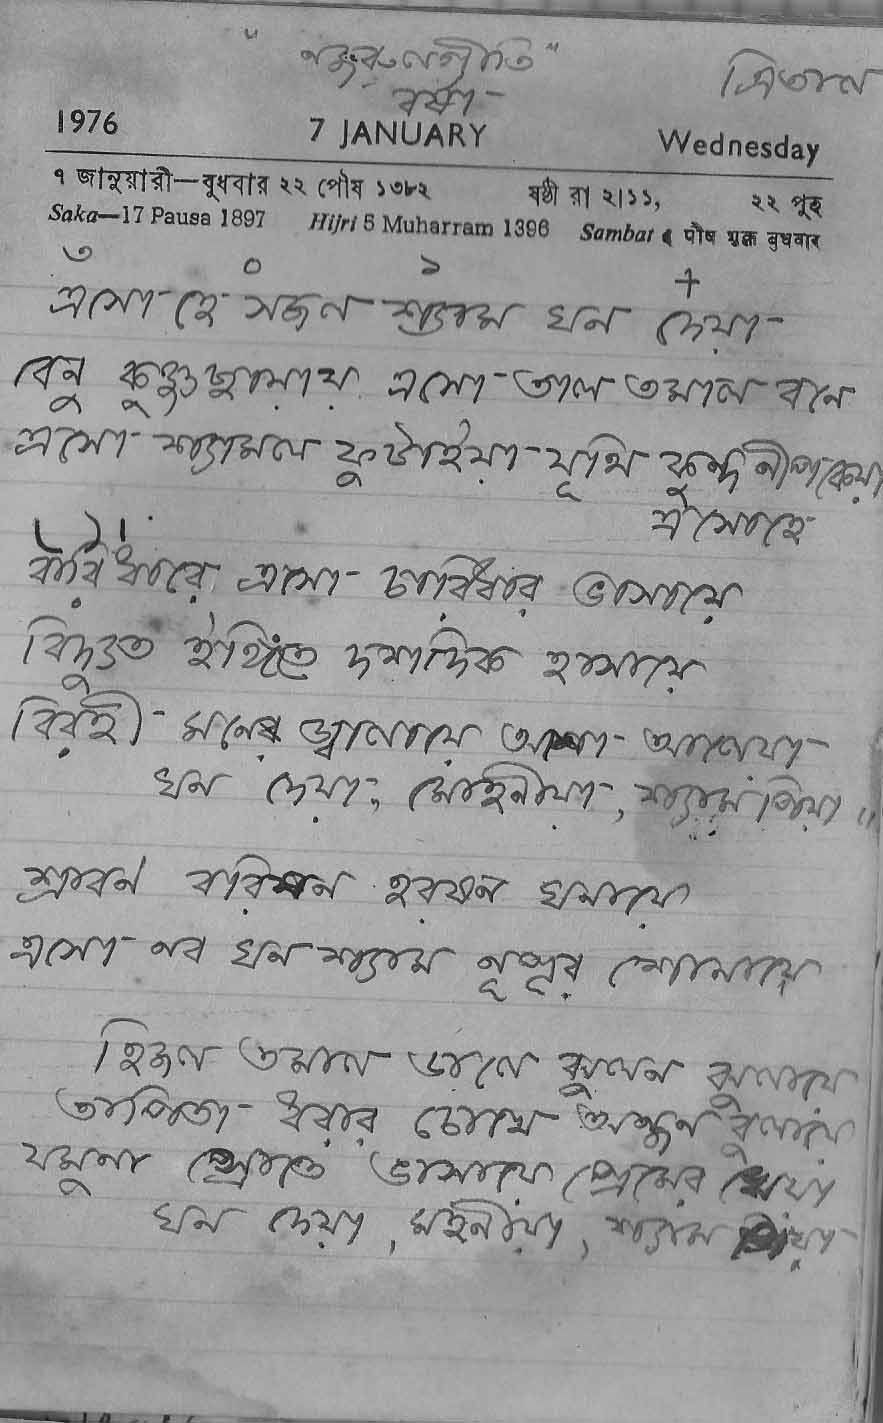 "নজরুলগীতি"
ত্রিতাল
বর্ষা-
1976 7 JANUARY Wednesday
৭ জানুয়ারী—বুধবার ২২ পৌষ ১৩৮২ ষষ্ঠী রা ২।১১, ২২ পুহ
Saka—17 Pausa 1897 Hijri 5 Muharram 1396 Sambat ৫ पौष शुक्ल बुधवार
৩ ০ ১ +
এসো হে সজল শ্যাম ঘন দেয়া-
বেনু কুঞ্জছায়ায় এসো তাল তমাল বনে
এসো শ্যামল ফুটাইয়া যূথি কুন্দ নীপ কেয়া
এসোহে
বারিধারে এসো চারিধার ভাসায়ে
বিদ্যুত ইঙ্গিতে দশদিক হাসায়ে
বিরহী মনের জ্বালায়ে আশা আলেয়া-
ঘন দেয়া, মোহনীয়া, শ্যাম পিয়া॥
শ্রাবন বরিষন হরষন ঘনায়ে
এসো নব ঘন শ্যাম নূপুর শোনায়ে
হিজল তমাল ডালে ঝুলন ঝুলায়ে
তাপিতা ধরার চোখে অঞ্জন বুলায়ে
যমুনা স্রোতে ভাসায়ে প্রেমের খেয়া
ঘন দেয়া, মহনীয়া, শ্যাম পিয়া-